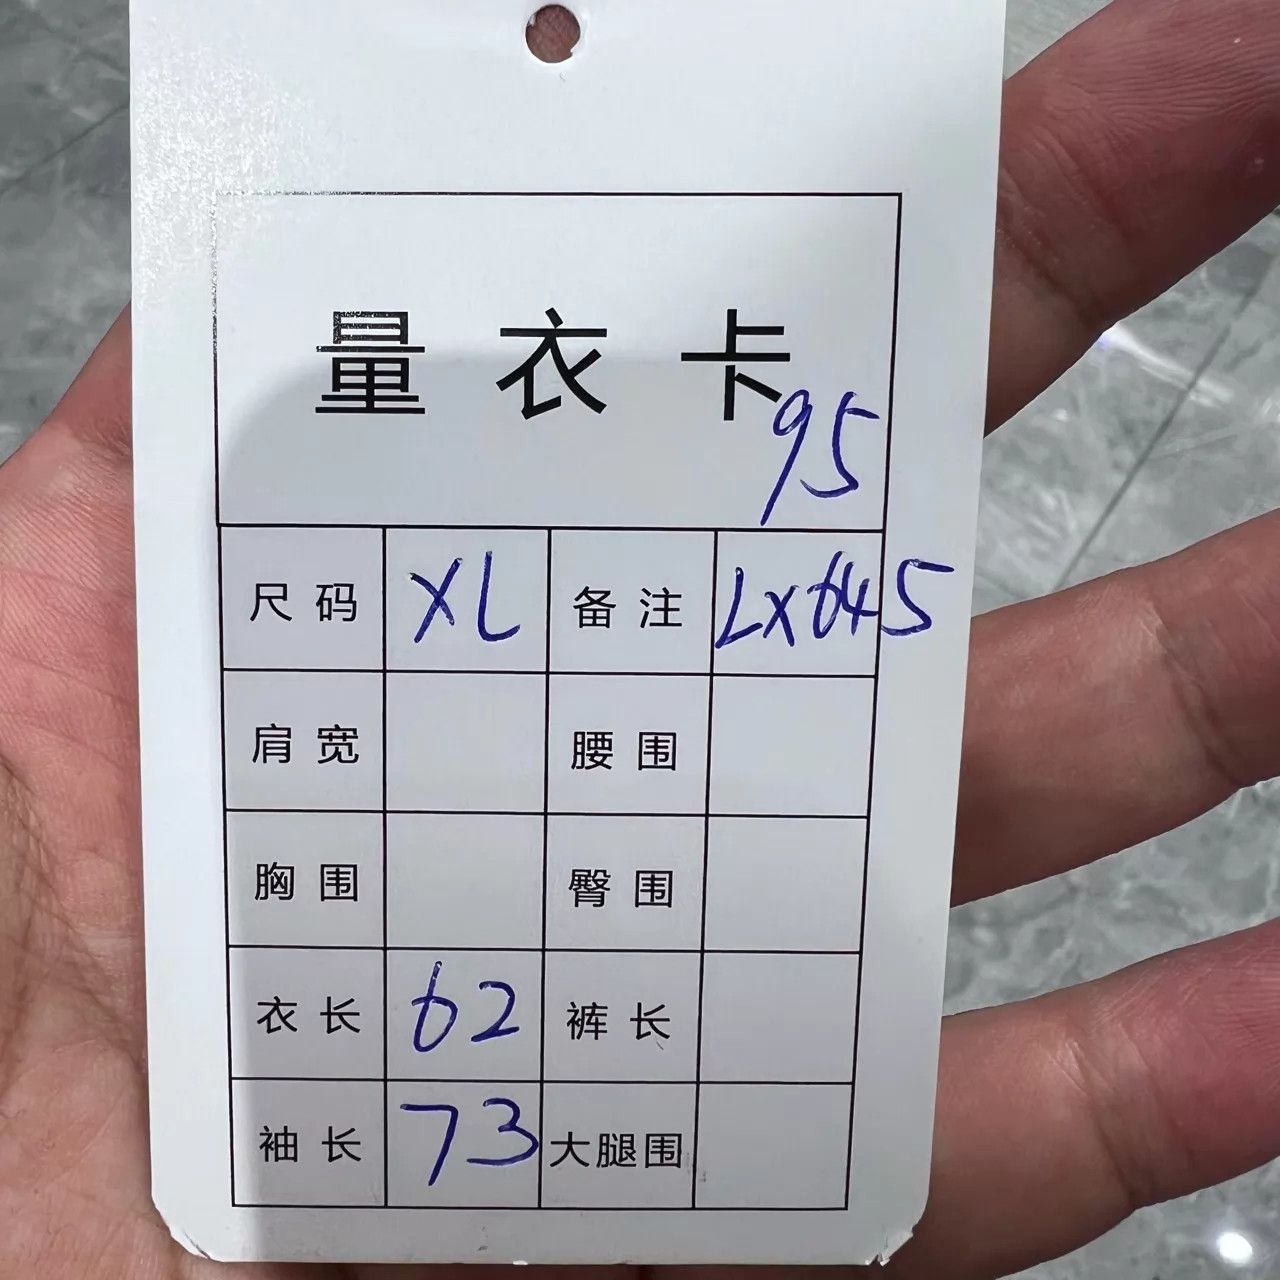 量衣卡
95
尺码 XL 备注 LX645
肩宽 腰围
胸围 臀围
衣长 62 裤长
袖长 73 大腿围